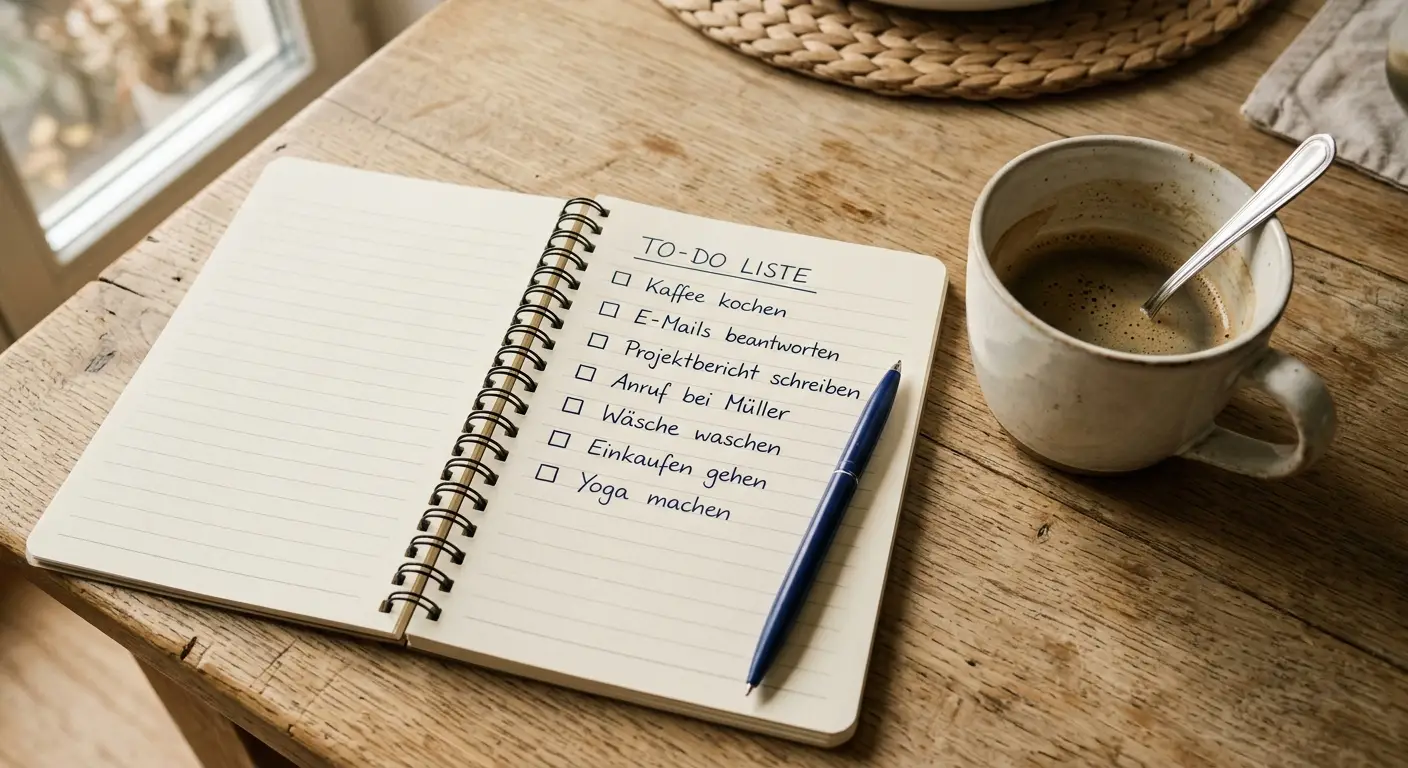 TO-DO LISTE
Kaffee kochen
E-Mails beantworten
Projektbericht schreiben
Anruf bei Müller
Wäsche waschen
Einkaufen gehen
Yoga machen